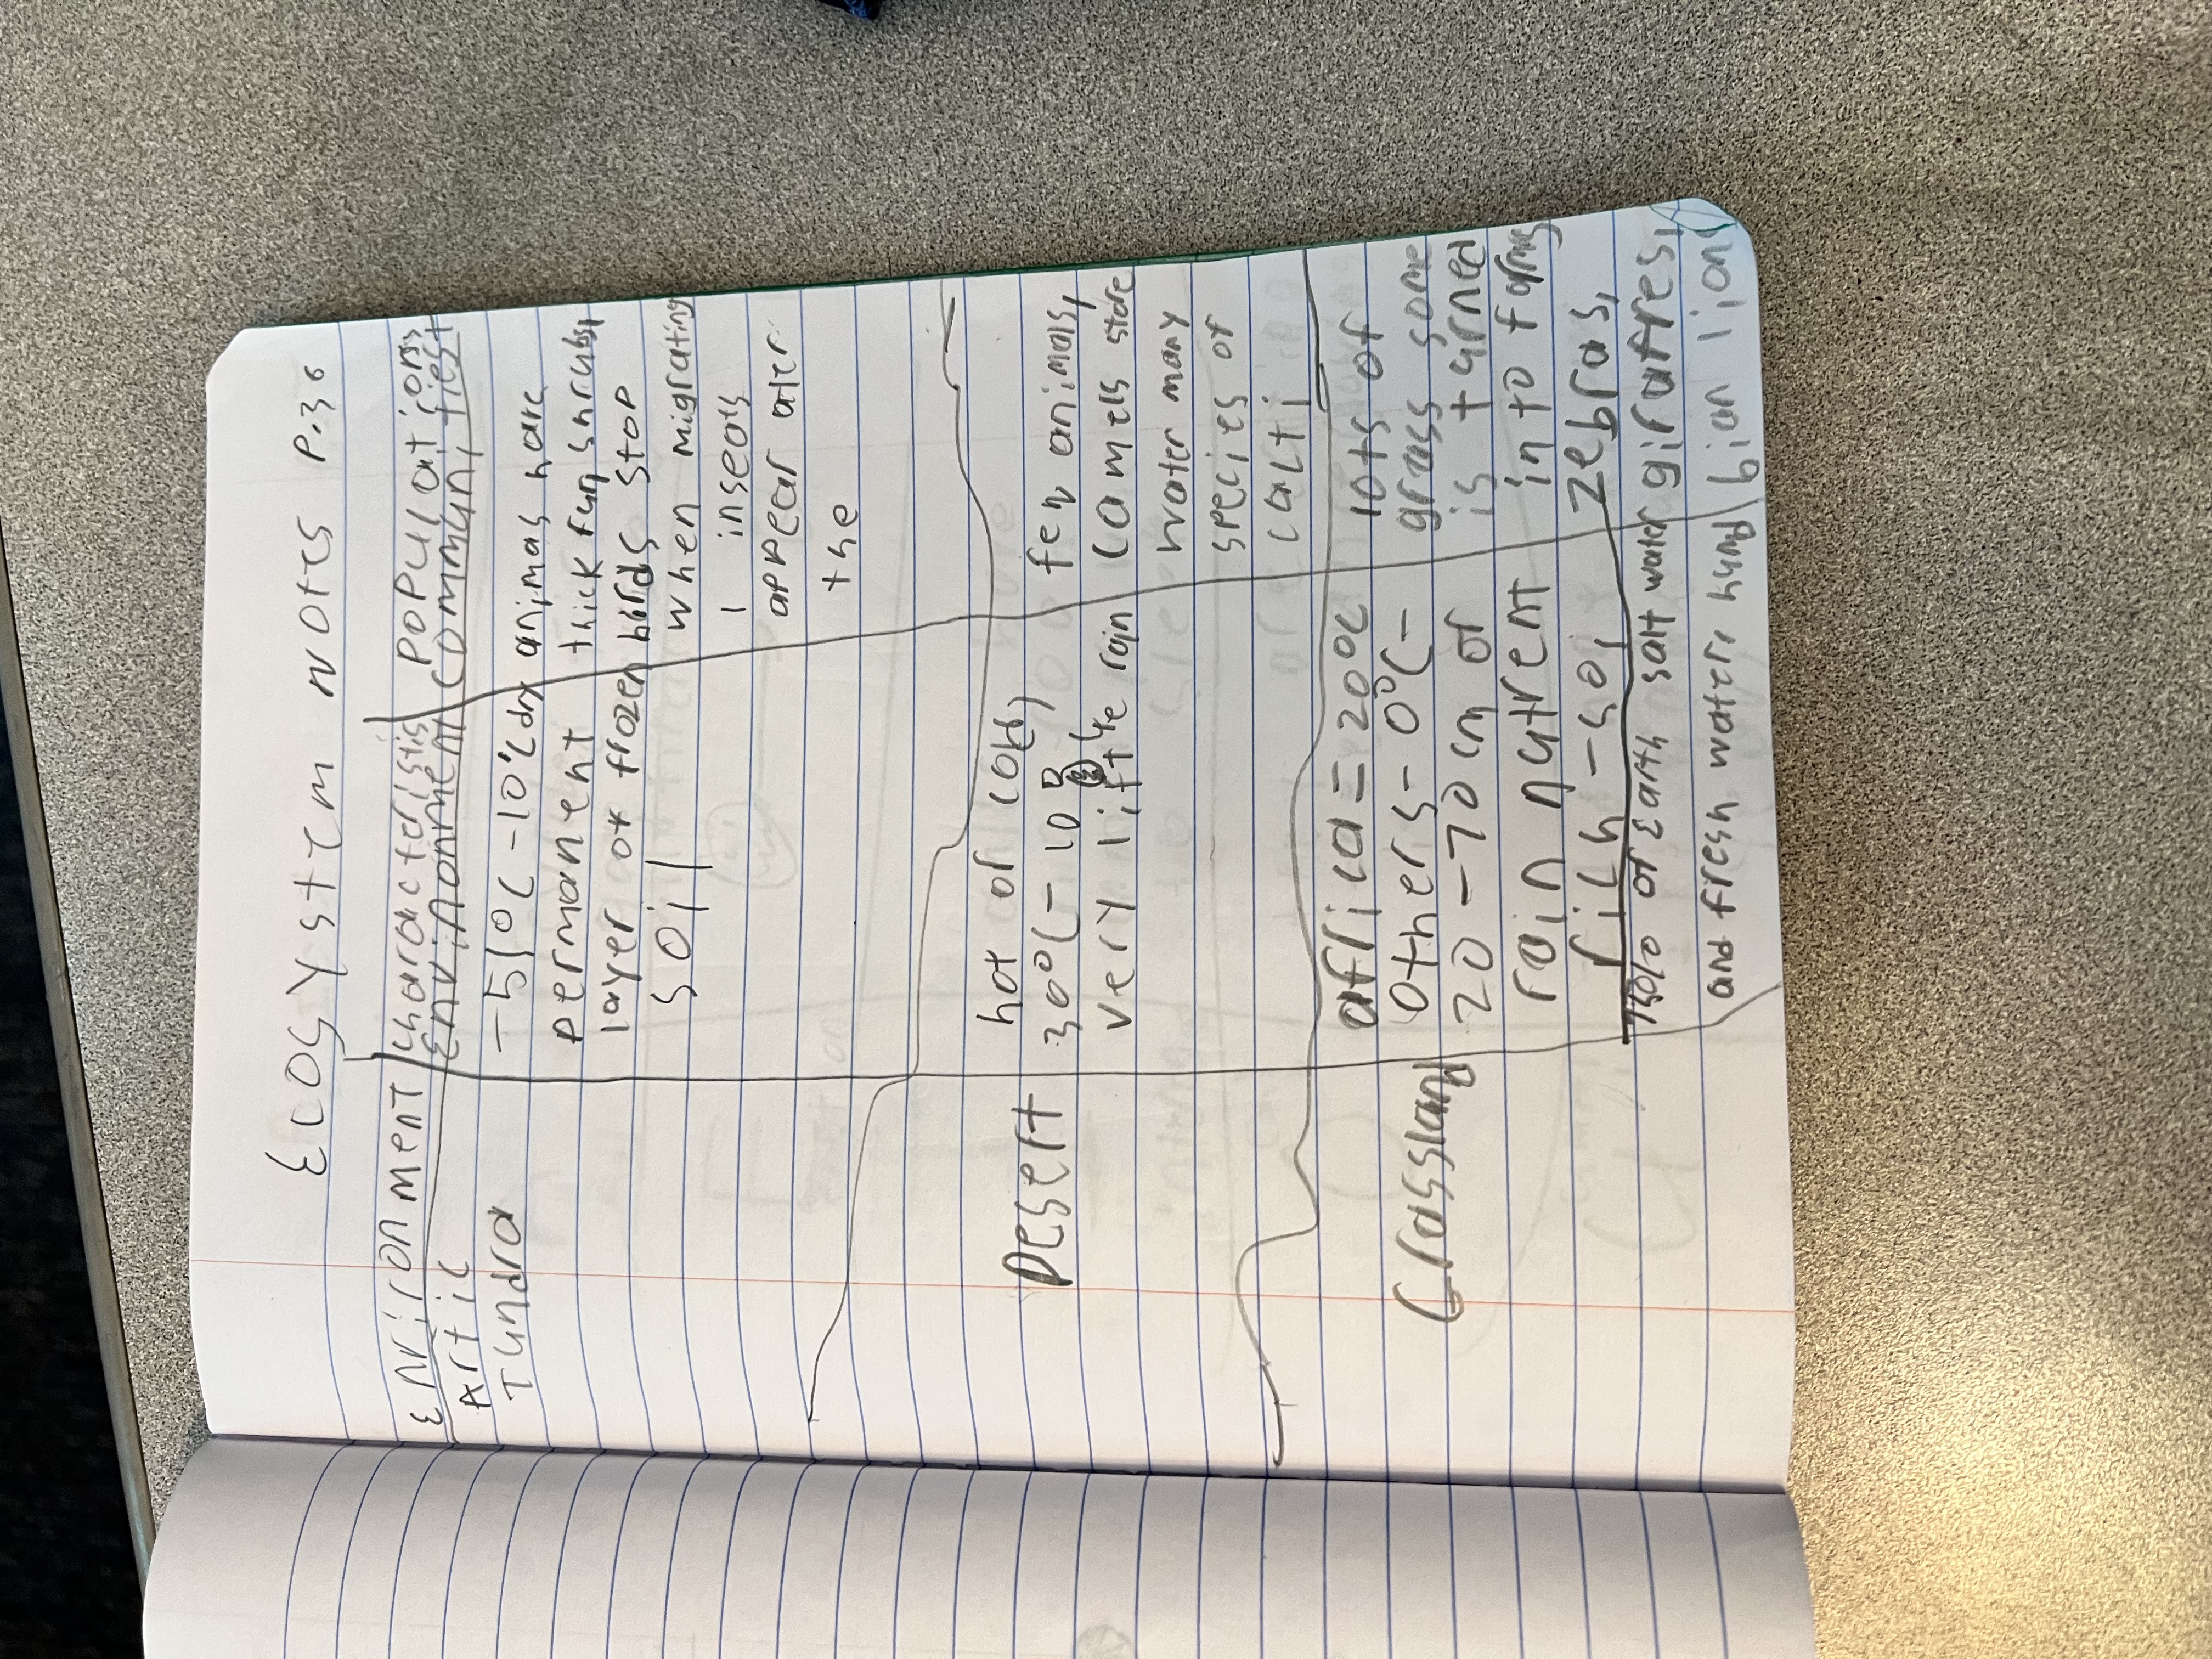 Ecosystem notes P.30
Environment
characteristis
Environment
populations
communitiest
Artic
Tundra
-51°C -10°C dry
permanent
layer of frozen
soil
animas have
thick fur, shrubs,
birds stop
when migrating
, inseats
appear ater
the
Desert
hot or cold
30°C - 10
very little rain
few animals,
camels store
water many
species of
cacti
Grassland
africa = 20°C
others - 0°C -
20 - 70 cm of
rain nutrent
rich - soil
lots of
grass some
is turned
in to farms
zebras,
giraffes,
lion
75% of Earth salt water
and fresh water